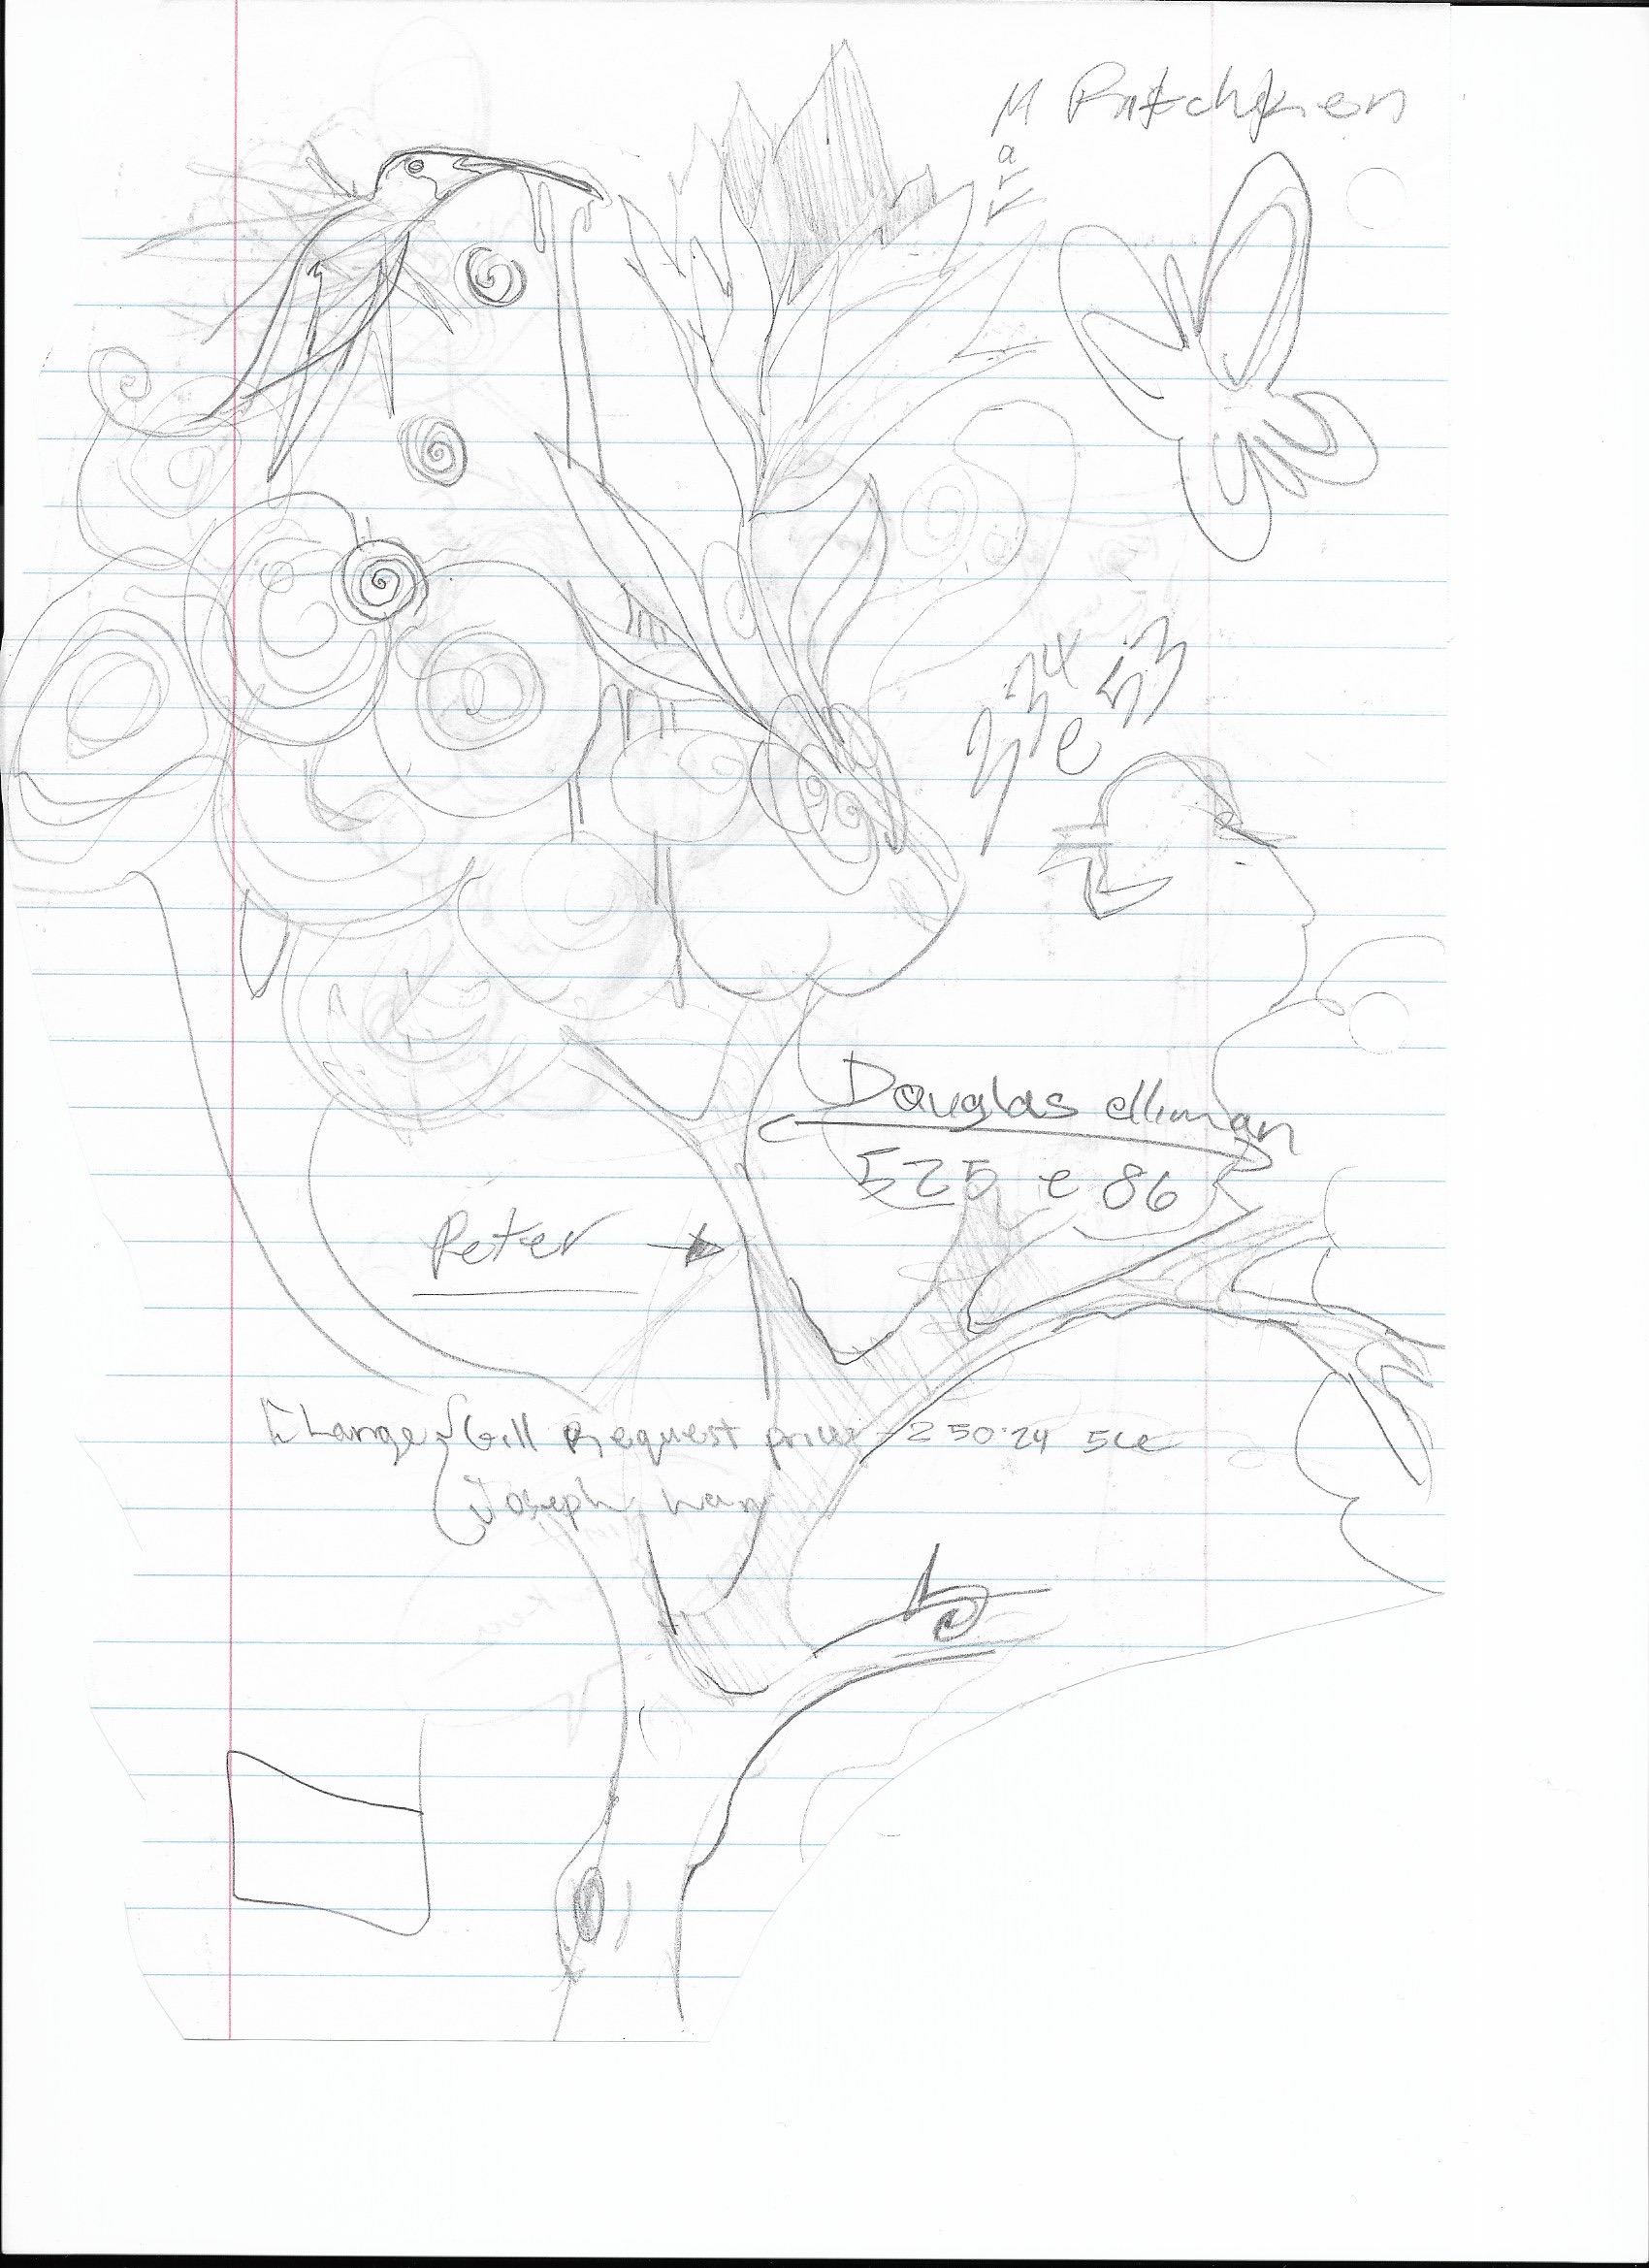 M
a
r
v
234
e 53
Douglas elliman
525 e 86
Peter
Change Gill Request price - 250.24 5ce
Joseph